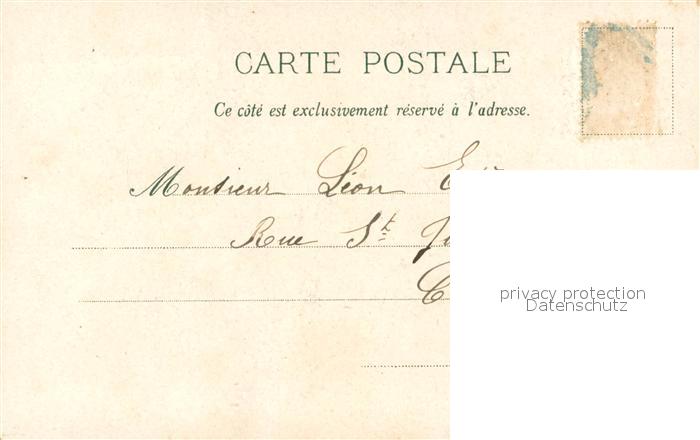 CARTE POSTALE
Ce côté est exclusivement réservé à l'adresse.
Monsieur Léon
Rue St
privacy protection
Datenschutz